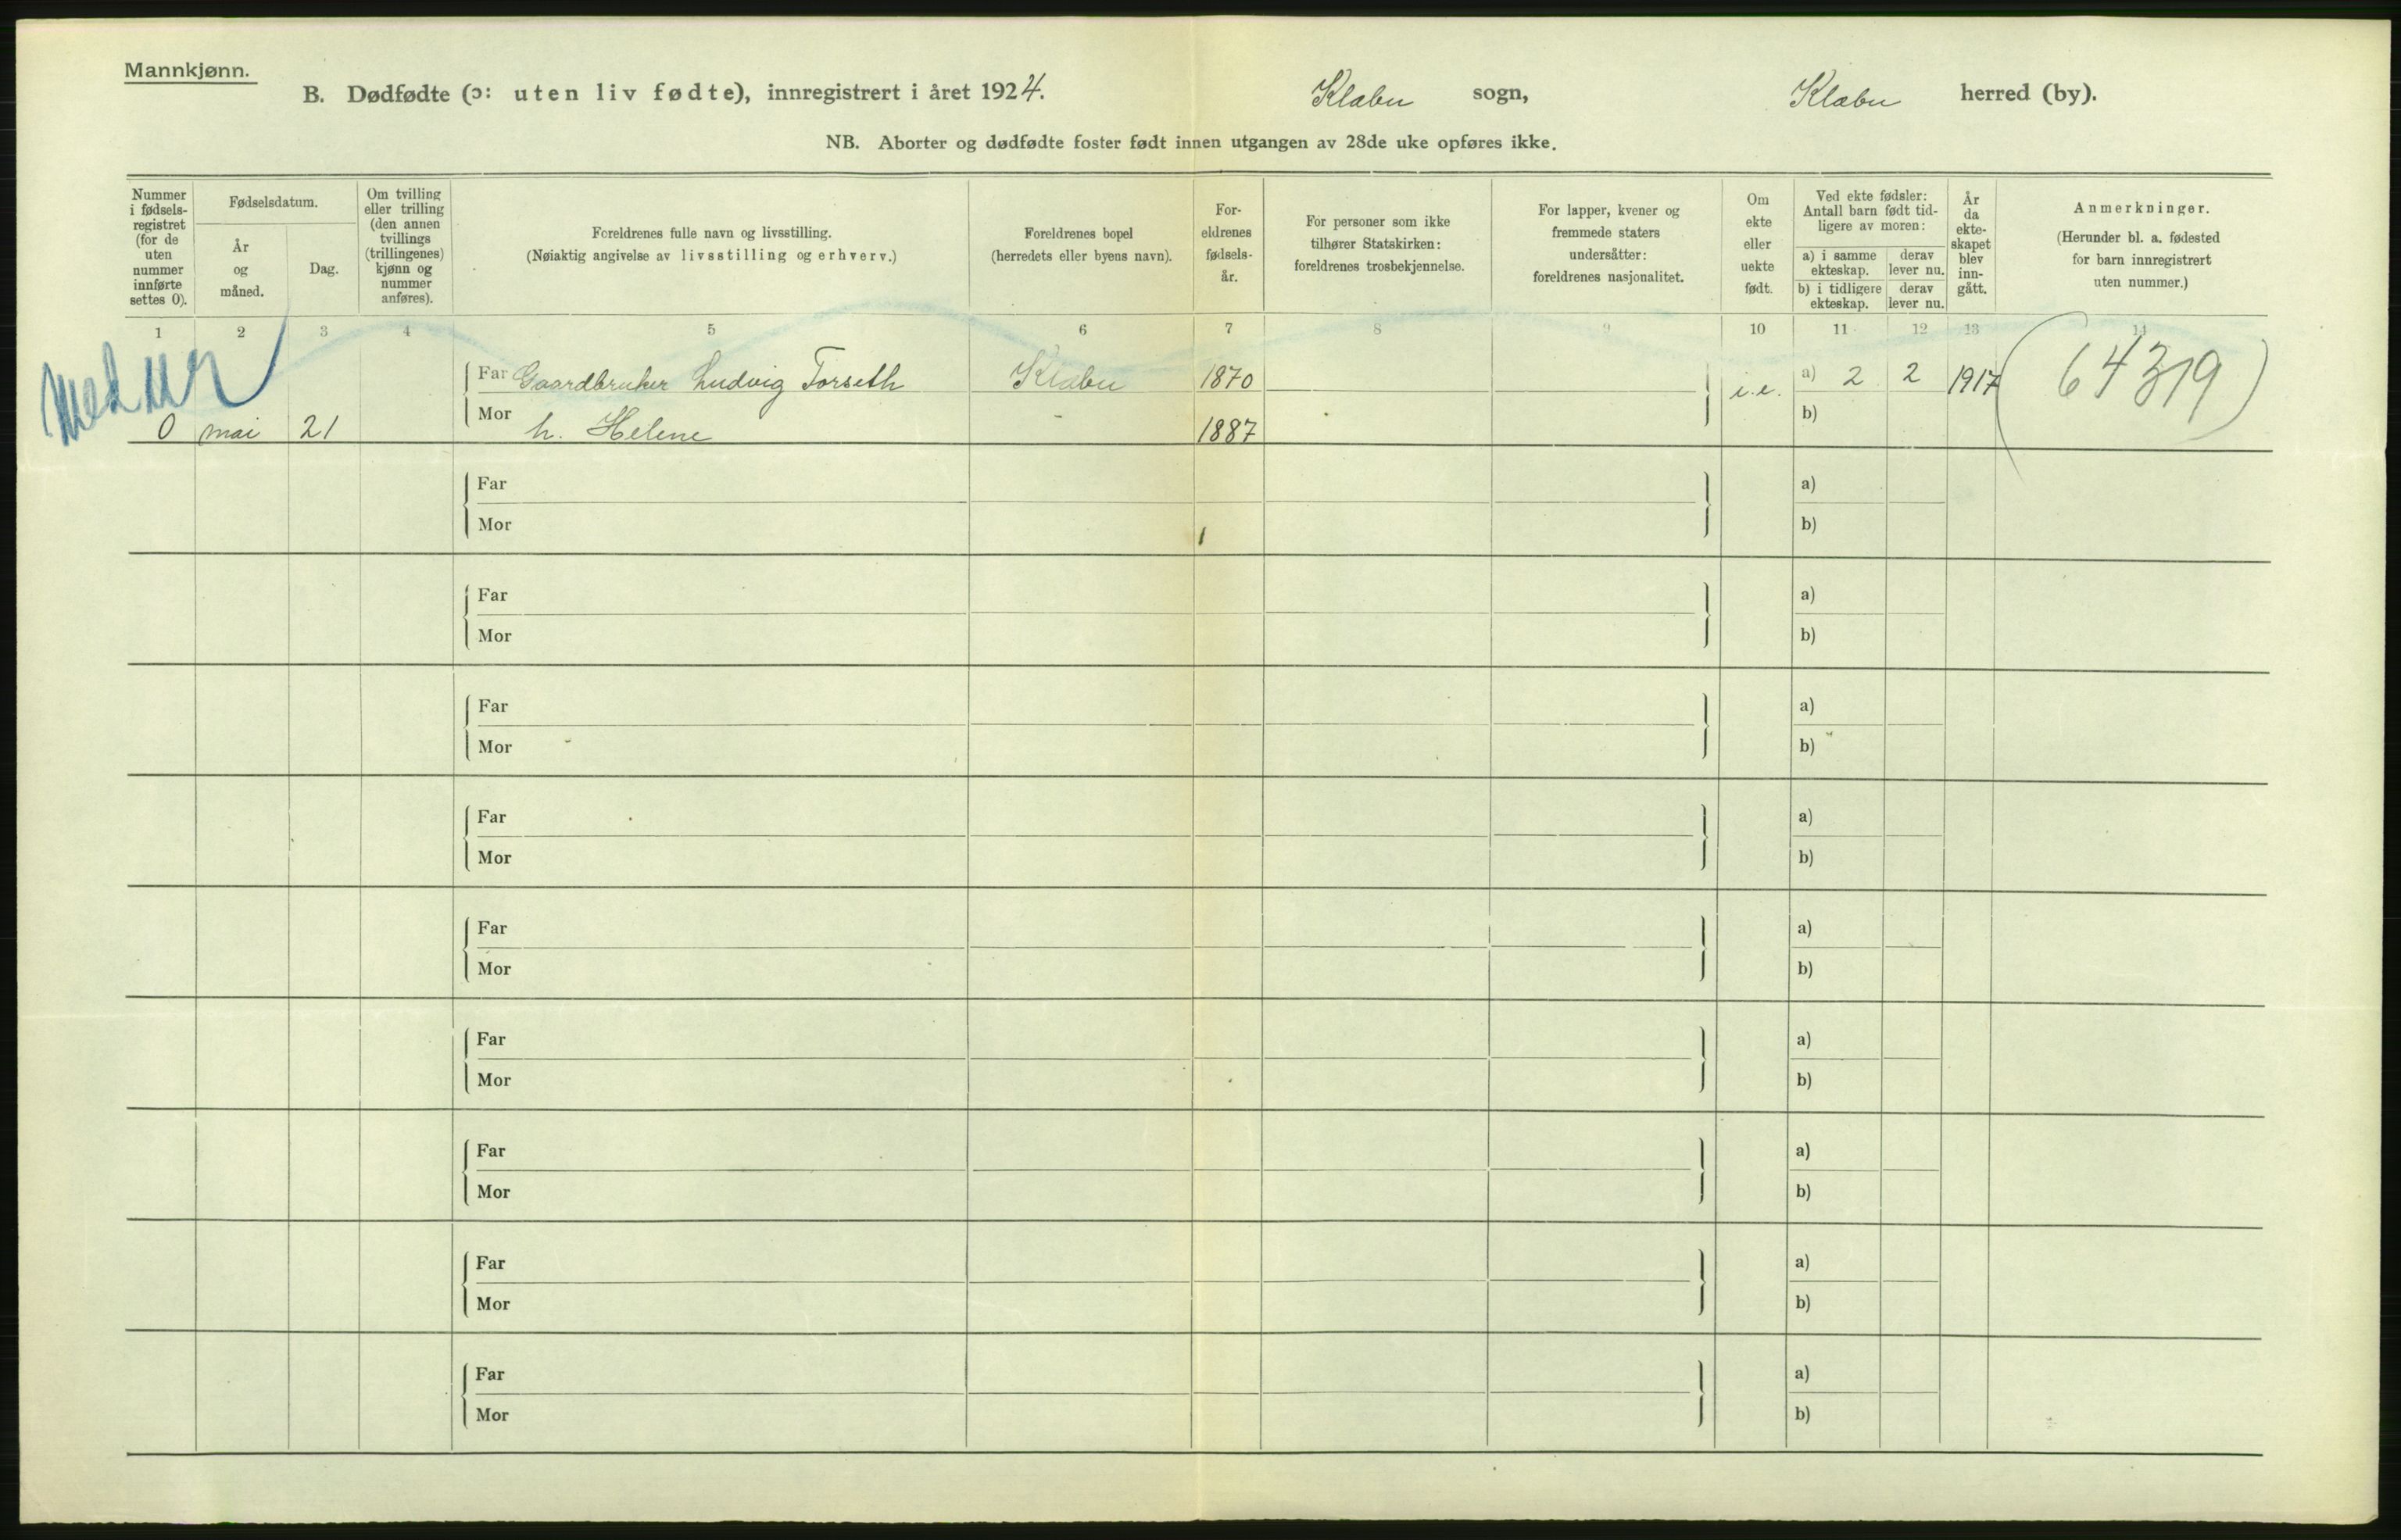 Mannkjønn.
B. Dødfødte (ɔ: uten liv fødte), innregistrert i året 1924. Klæbu sogn, Klæbu herred (by).
NB. Aborter og dødfødte foster født innen utgangen av 28de uke opføres ikke.
Nummer
i fødsels-
registret
(for de
uten
nummer
innførte
settes 0).
Fødselsdatum.
År
og
måned.
Dag.
Om tvilling
eller trilling
(den annen
tvillings
(trillingenes)
kjønn og
nummer
anføres).
Foreldrenes fulle navn og livsstilling.
(Nøiaktig angivelse av livsstilling og erhverv.)
Foreldrenes bopel
(herredets eller byens navn).
For-
eldrenes
fødsels-
år.
For personer som ikke
tilhører Statskirken:
foreldrenes trosbekjennelse.
For lapper, kvener og
fremmede staters
undersåtter:
foreldrenes nasjonalitet.
Om
ekte
eller
uekte
født.
Ved ekte fødsler:
Antall barn født tid-
ligere av moren:
a) i samme
ekteskap.
derav
lever nu.
b) i tidligere
ekteskap.
derav
lever nu.
År
da
ekte-
skapet
blev
inn-
gått.
Anmerkninger.
(Herunder bl. a. fødested
for barn innregistrert
uten nummer.)
1 2 3 4 5 6 7 8 9 10 11 12 13 14
Far Gaardbruker Ludvig Forseth Klæbu 1870 i.e. a) 2 2 1917 (64319)
0 mai 21 Mor h. Helene 1887 b)
Far a)
Mor b)
Far a)
Mor b)
Far a)
Mor b)
Far a)
Mor b)
Far a)
Mor b)
Far a)
Mor b)
Far a)
Mor b)
Far a)
Mor b)
Far a)
Mor b)